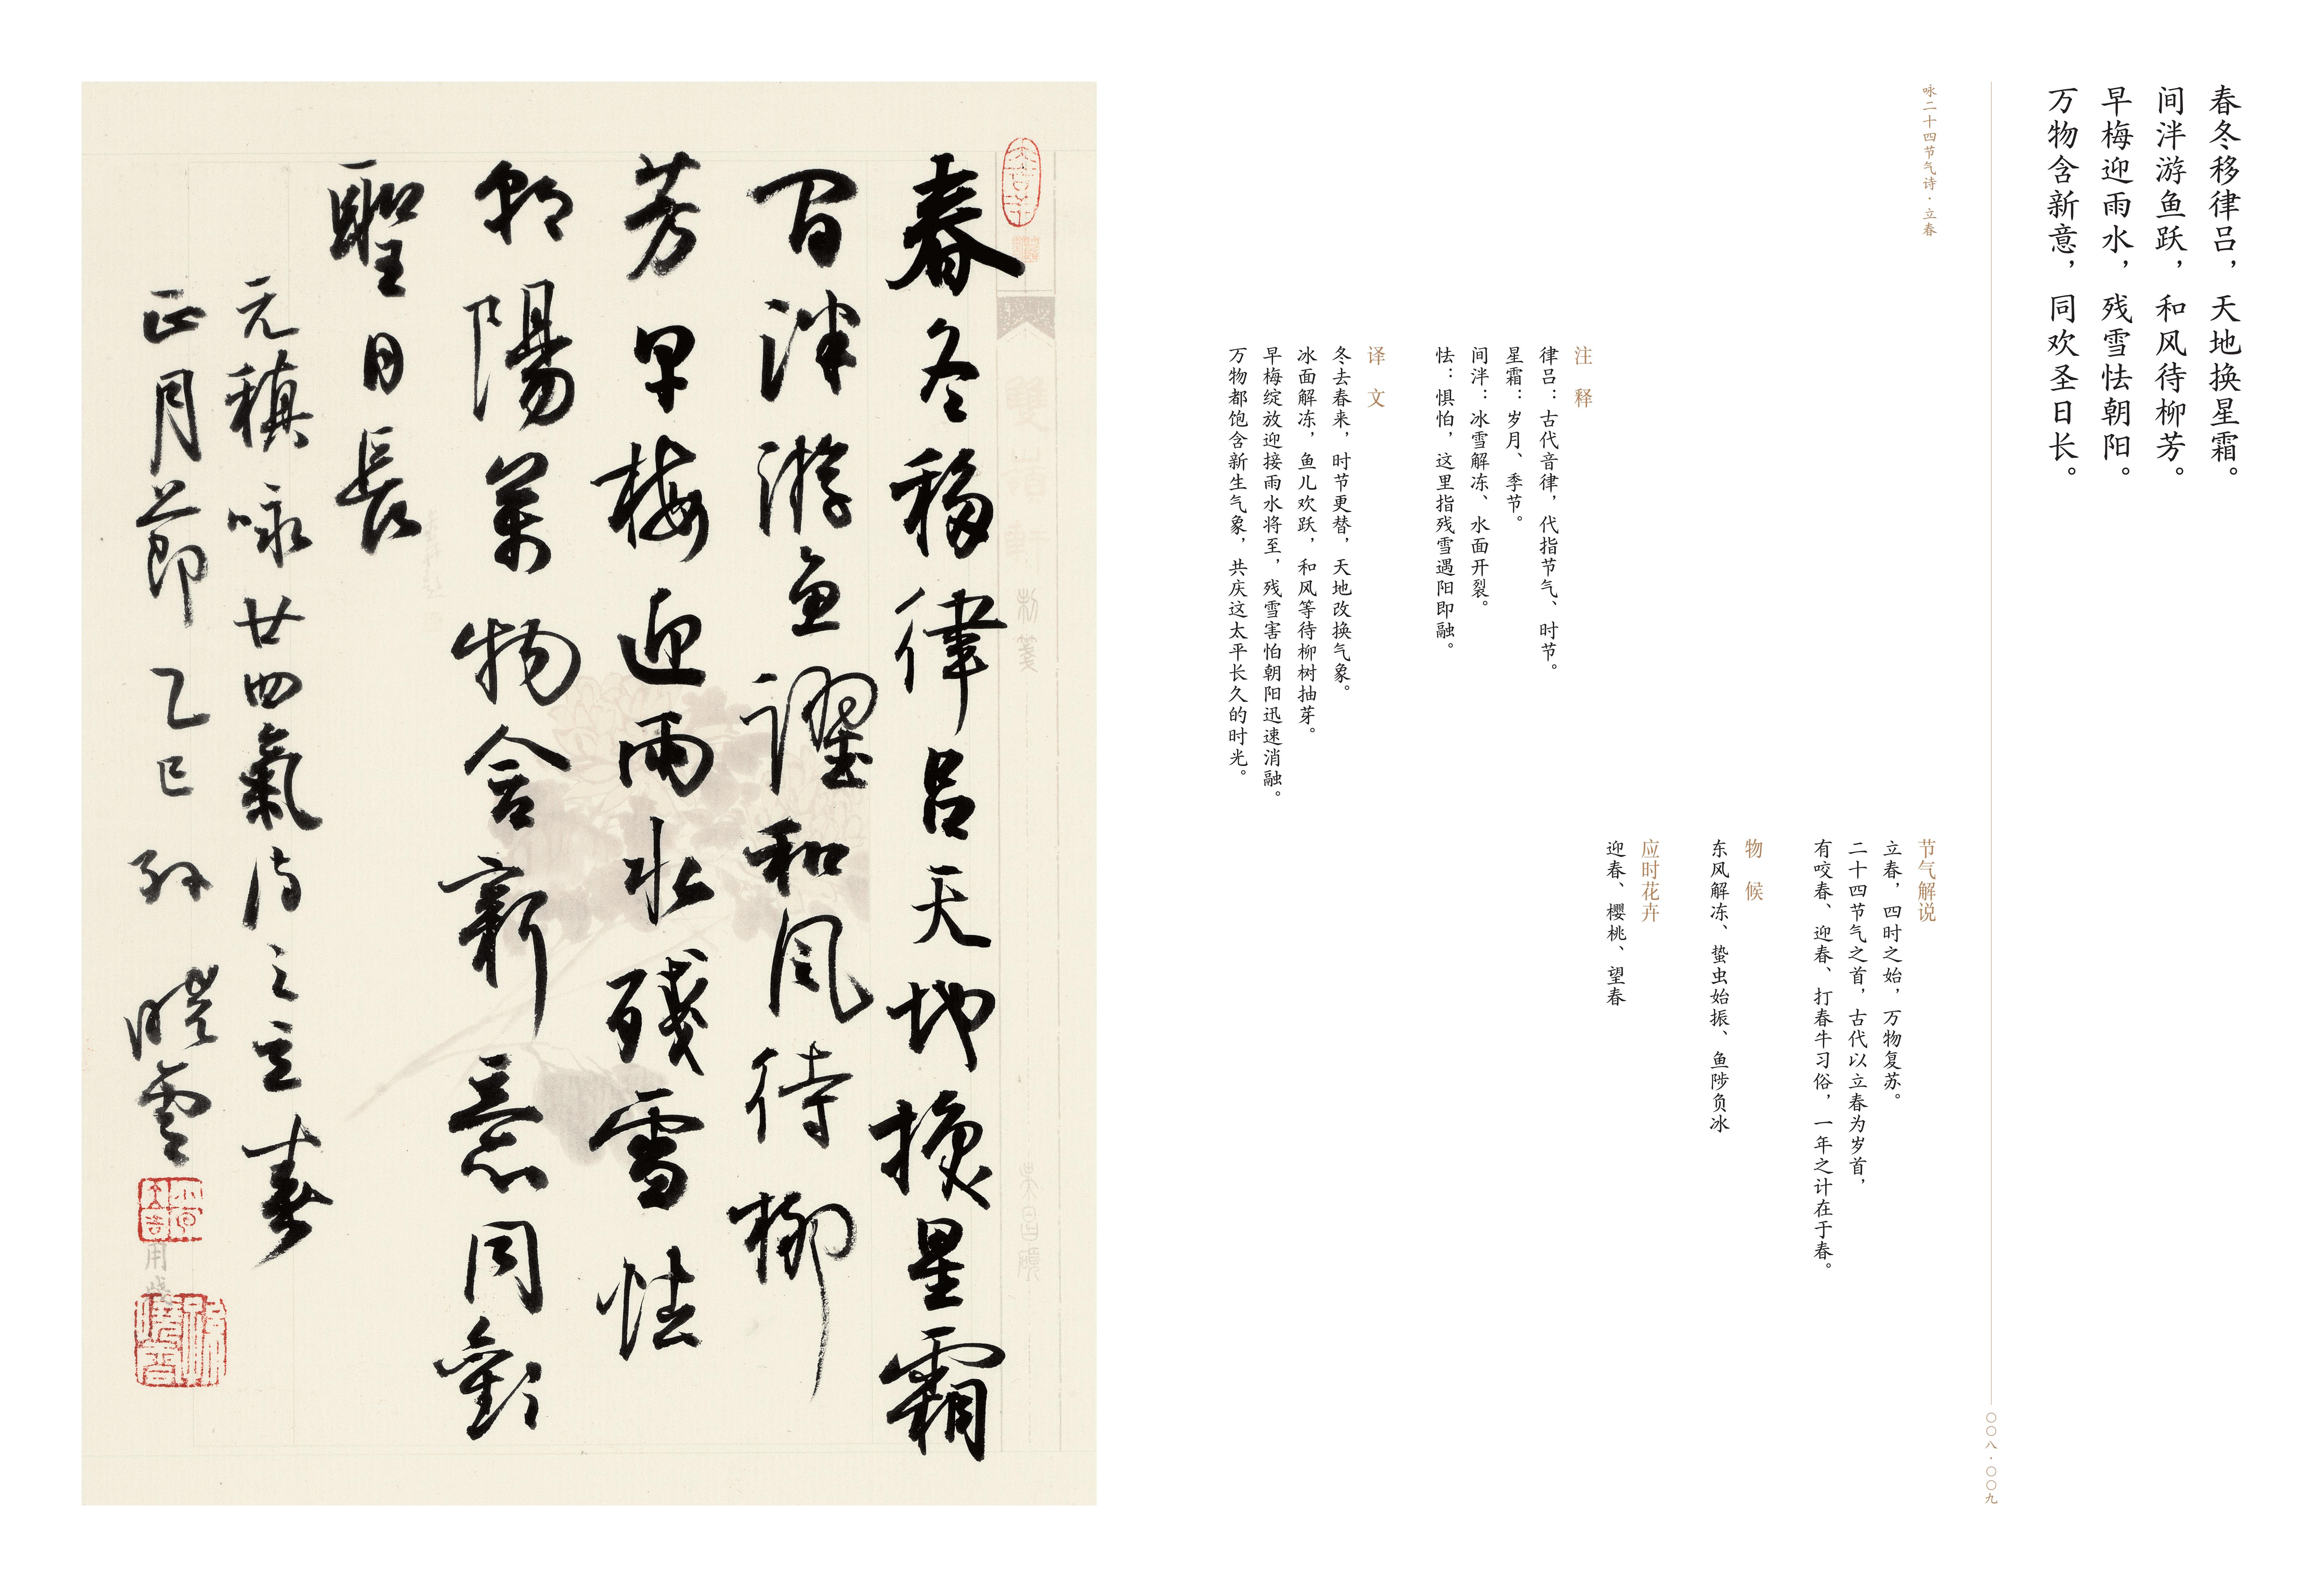 春冬移律吕，天地换星霜。
间泮游鱼跃，和风待柳芳。
早梅迎雨水，残雪怯朝阳。
万物含新意，同欢圣日长。
咏二十四节气诗·立春
节气解说
立春，四时之始，万物复苏。
二十四节气之首，古代以立春为岁首，
有咬春、迎春、打春牛习俗，一年之计在于春。
物候
东风解冻、蛰虫始振、鱼陟负冰
应时花卉
迎春、樱桃、望春
注释
律吕：古代音律，代指节气、时节。
星霜：岁月、季节。
间泮：冰雪解冻、水面开裂。
怯：惧怕，这里指残雪遇阳即融。
译文
冬去春来，时节更替，天地改换气象。
冰面解冻，鱼儿欢跃，和风等待柳树抽芽。
早梅绽放迎接雨水将至，残雪害怕朝阳迅速消融。
万物都饱含新生气象，共庆这太平长久的时光。
〇〇八·〇〇九
雙嶺軒制箋
吳昌碩
春冬移律呂天地換星霜
間泮游魚躍和風待柳
芳早梅迎雨水殘雪怯
朝陽萬物含新意同歡
聖日長
元稹咏廿四氣詩之立春
正月節乙巳孙曉雲
用箋